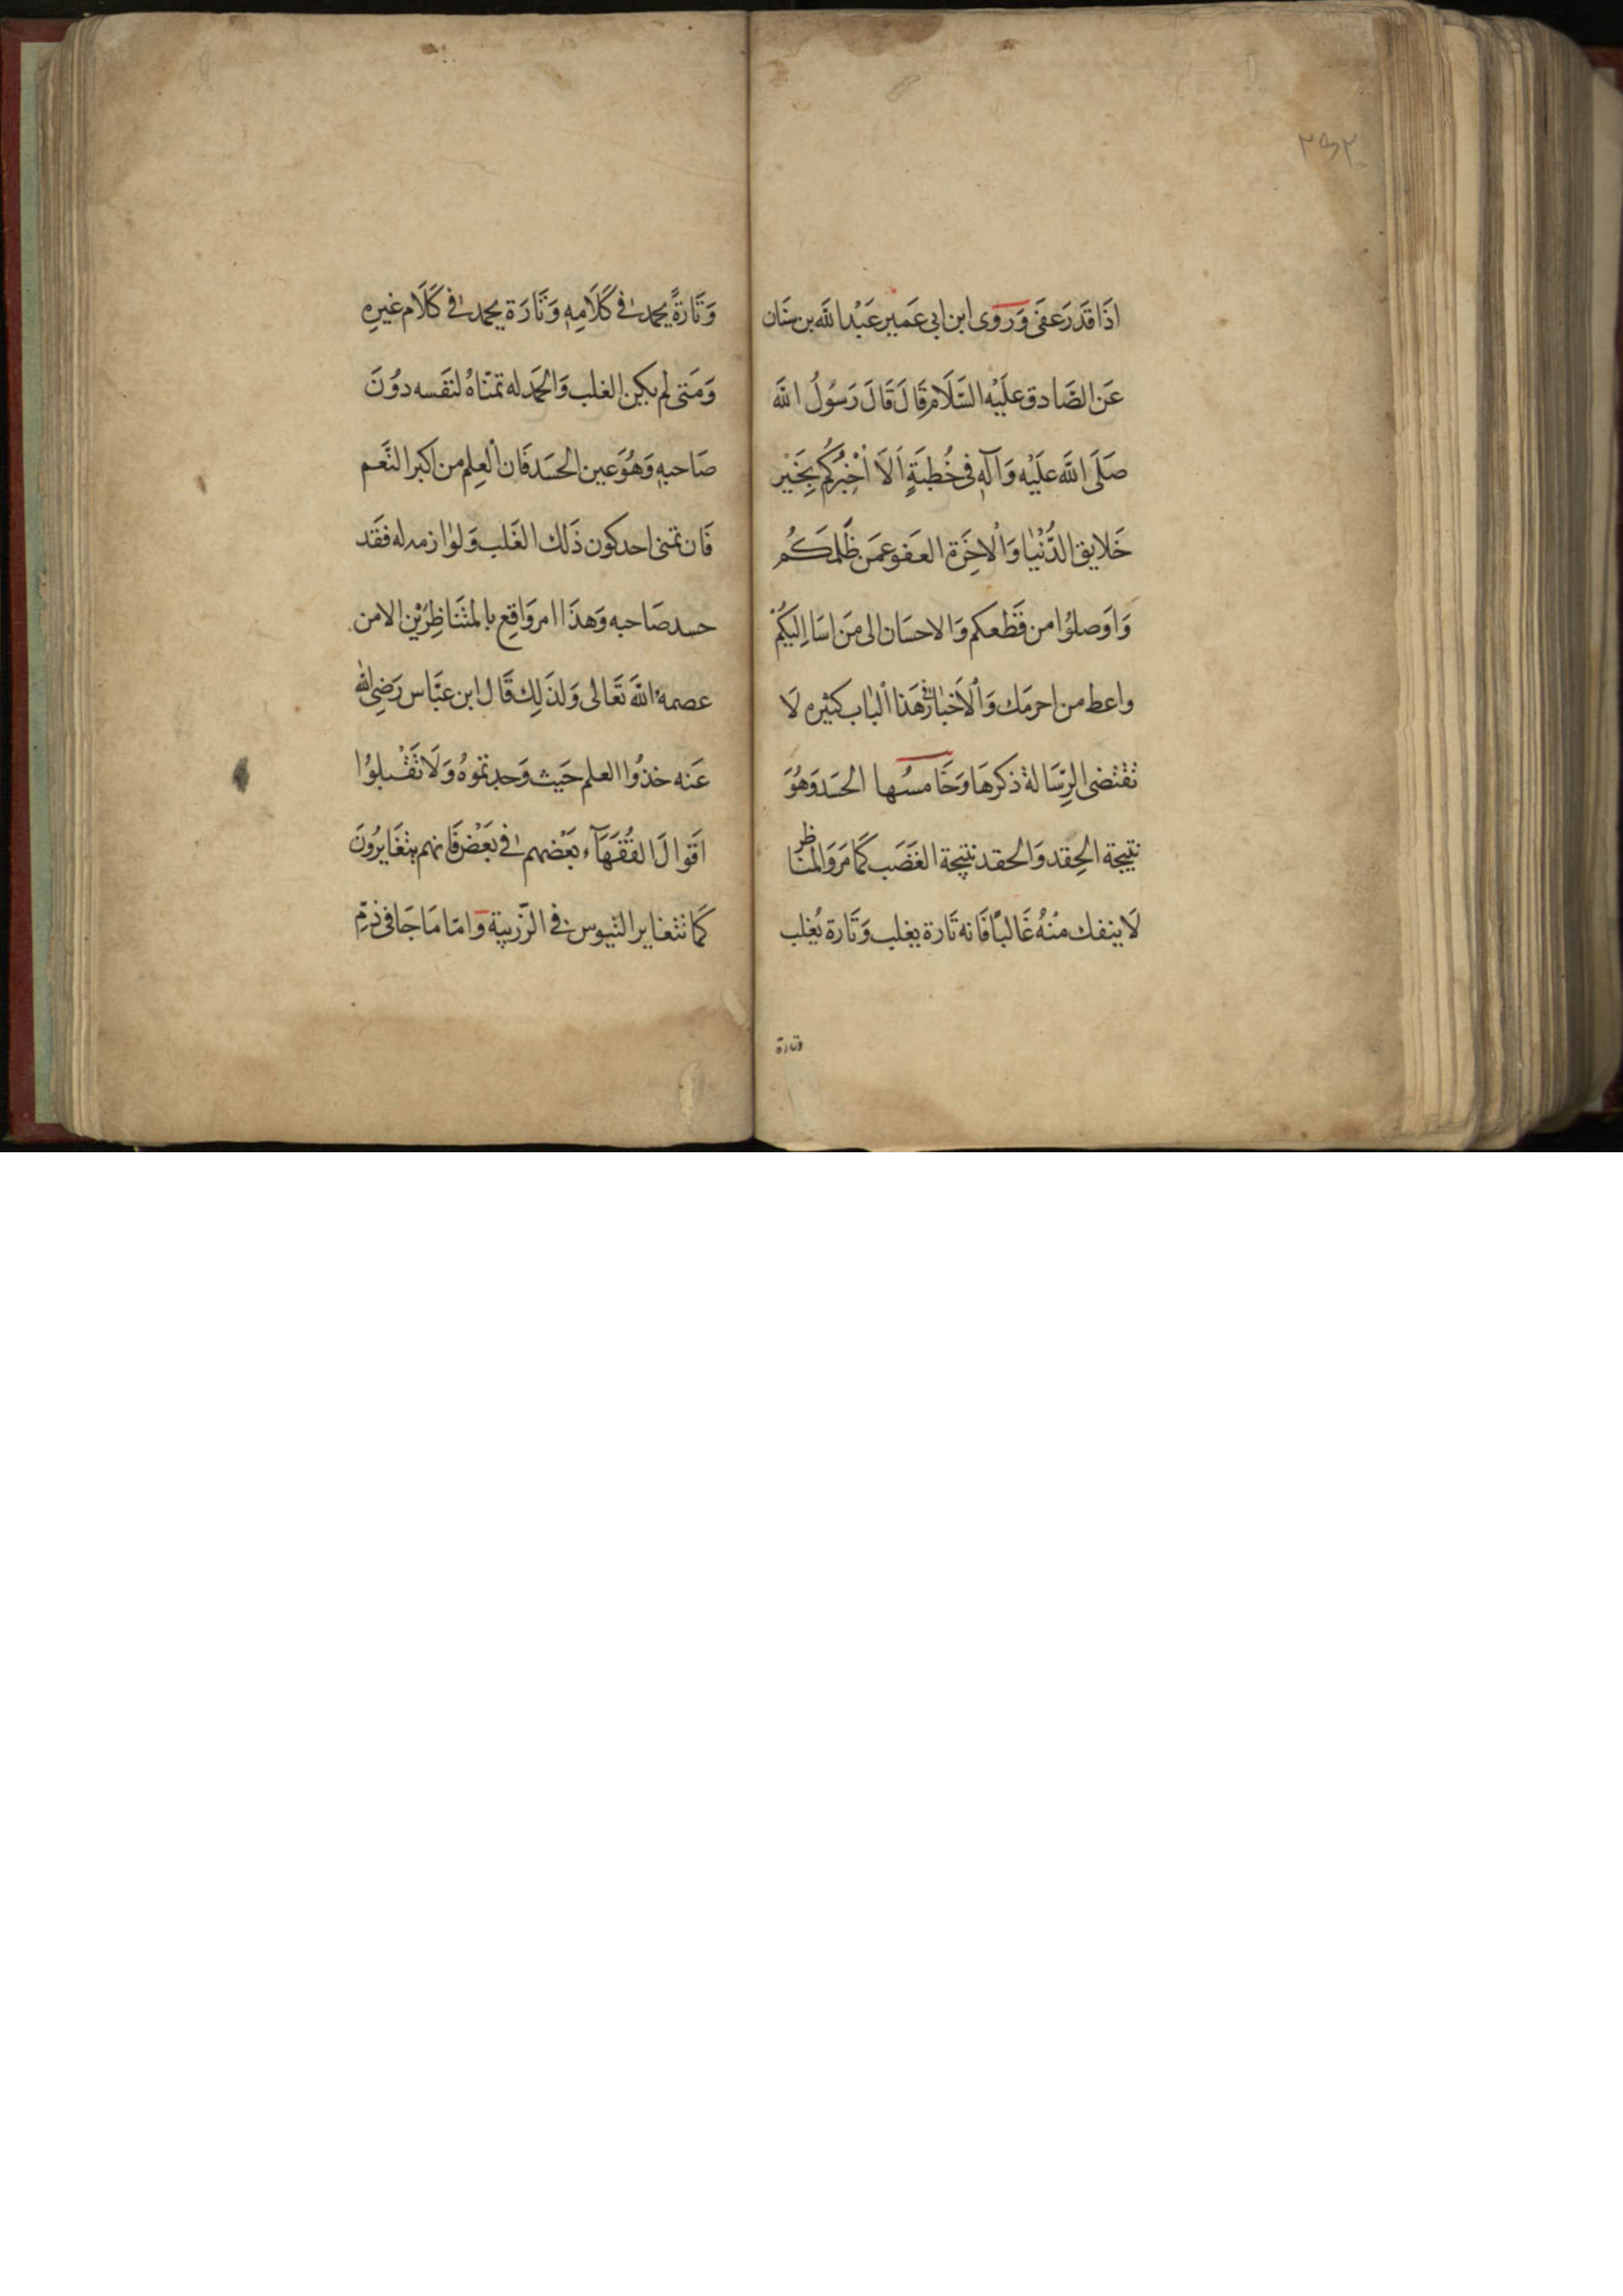 ٢٥٢
اذَا قَدَرَ عفَى وَرَوى ابن ابى عَمير عَبْد الله بن سنَان
عَن الصَّادق علَيْه السَّلَام قَالَ قَالَ رَسُولُ الله
صَلَى اللَّه علَيْه وَآلَهِ فى خُطبَةٍ اَلَا اُخْبِرُكُم بِخَيْر
خَلايق الدُّنْيٰا وَالْاخِرَة العَفو عمَن ظَلمَكُم
وَاوَصلُوا من قَطَعكم وَالاحسَان الى مَن اسَا اِليكُم
واعط من احرمَك وَالْاَخبٰار فى هَذا الْبٰاب كثيره لَا
تقتضى الرِسَالة ذكرهَا وَخَامسُها الحسَد وَهُوَ
نتيجة الحِقد وَالحقد نتيجة الغَضَب كَمَا مَر وَالمنَاظر
لَا ينفك منْهُ غَالبًا فَانه تَارة يغلب وَتَارة يُغلب
وتارة
وَتَارَةً يحمد فى كَلَامِهِ وَتَارَة يحمد فى كَلَام غيرِهِ
وَمَتى لم يكن الغلب وَالحَمد له تمنّاهُ لنفَسه دوُنَ
صَاحبهِ وَهُوَ عين الحسَد فَان العِلم من اكبر النَّعم
فَان تمنى احد كون ذَلك الغَلب وَلوٰازمه له فقَد
حسد صَاحبه وَهذَا امر وَاقِع بالمتَنَاظِرَيْن الا من
عصمهُ اللهَ تعَالى وَلذَلِك قَال ابن عبَّاس رَضِى الله
عَنه خذُوا العلم حَيث وَجدتموهُ وَلَا تَقْبلوُا
اقَوالَ الفُقَهَآء بَعْضهم فى بَعْض فَانهم يتغَايرُونَ
كَمَا تتغاير التيوس فى الزّريبة وَامّا مَا جَا فى ذمِّ